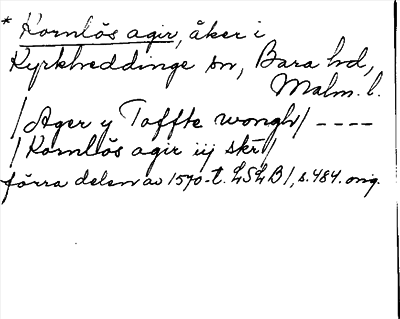 * Kornlös agir, åker i
Kyrkheddinge sn, Bara hd,
Malm. l.
/Ager y Toffte wongh/ ----
/Kornlös agir iij skr/
förra delen av 1570-t. LSLB1, s. 484. orig.